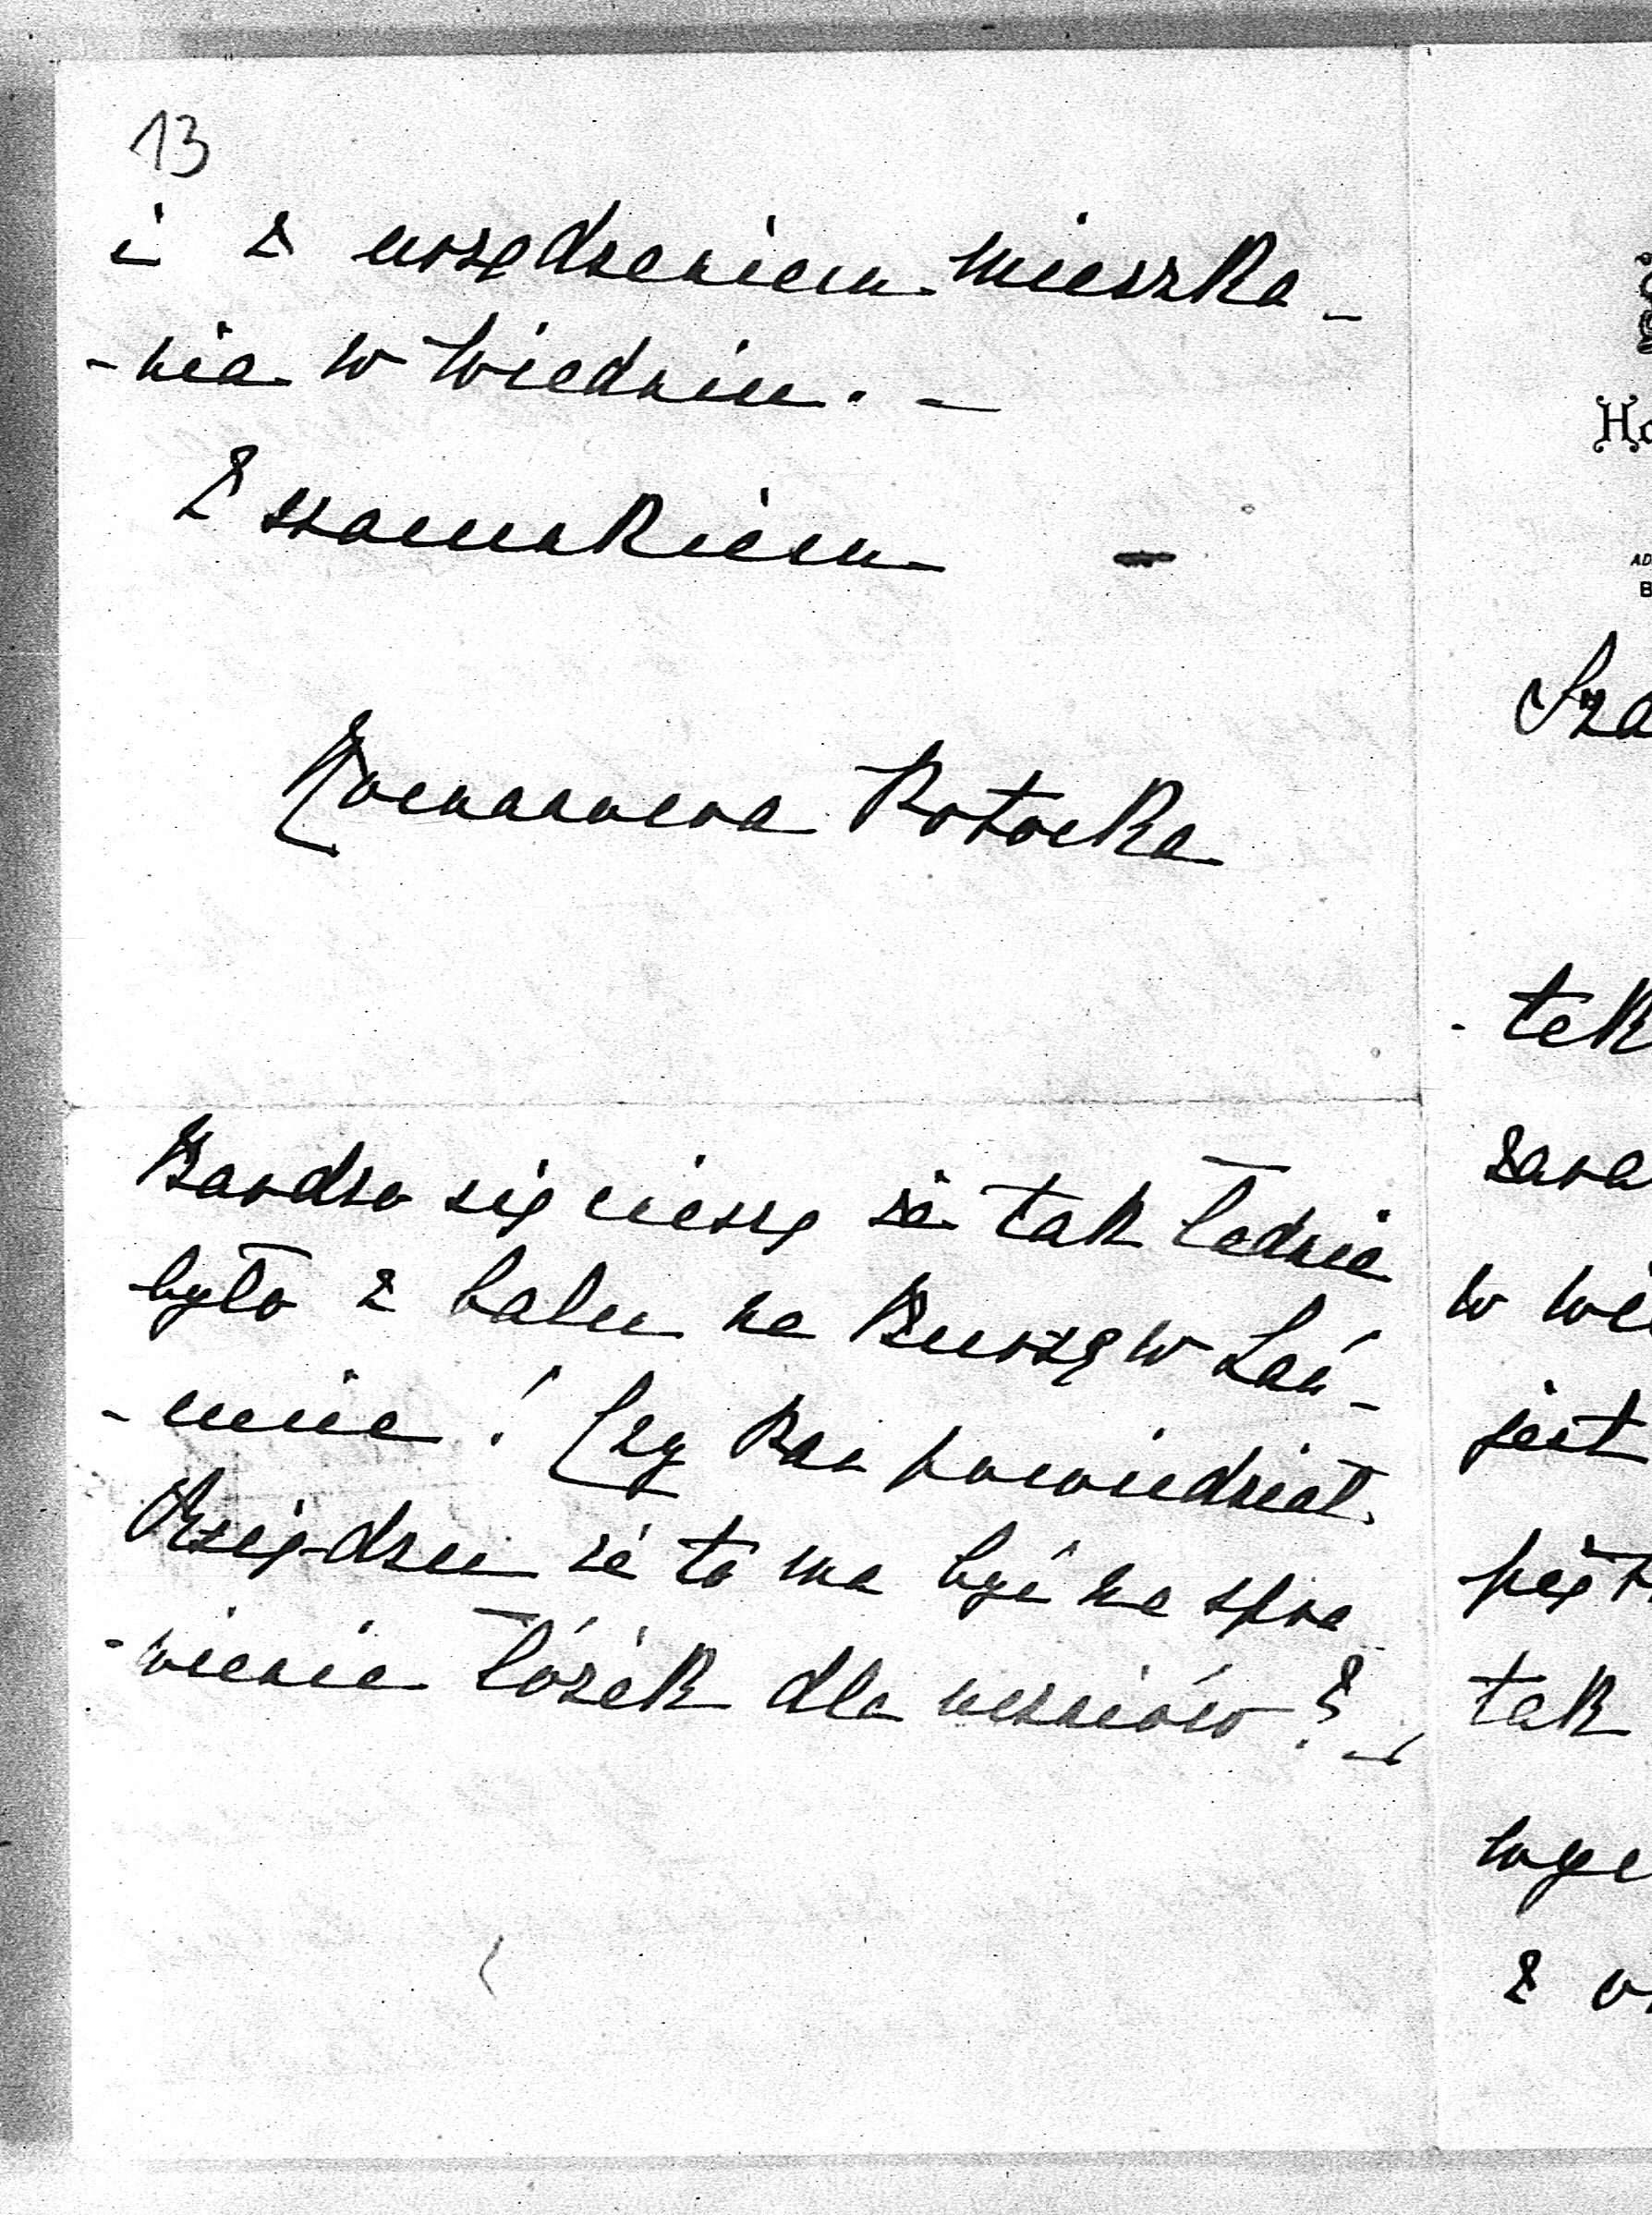 13
i z urządzeniem mieszka-
-nia w Wiedniu. -
Z szacunkiem -
Romanowa Potocka
Bardzo się cieszę że tak ładnie
było z balu na Bursę w Łań-
-cucie! Czy Pan powiedział
Księdzu że to ma być na spra
-wienie łóżek dla uczniów? -
Ho
AD
B
Sza
-tek
zara
w Wie
jest
tak
z